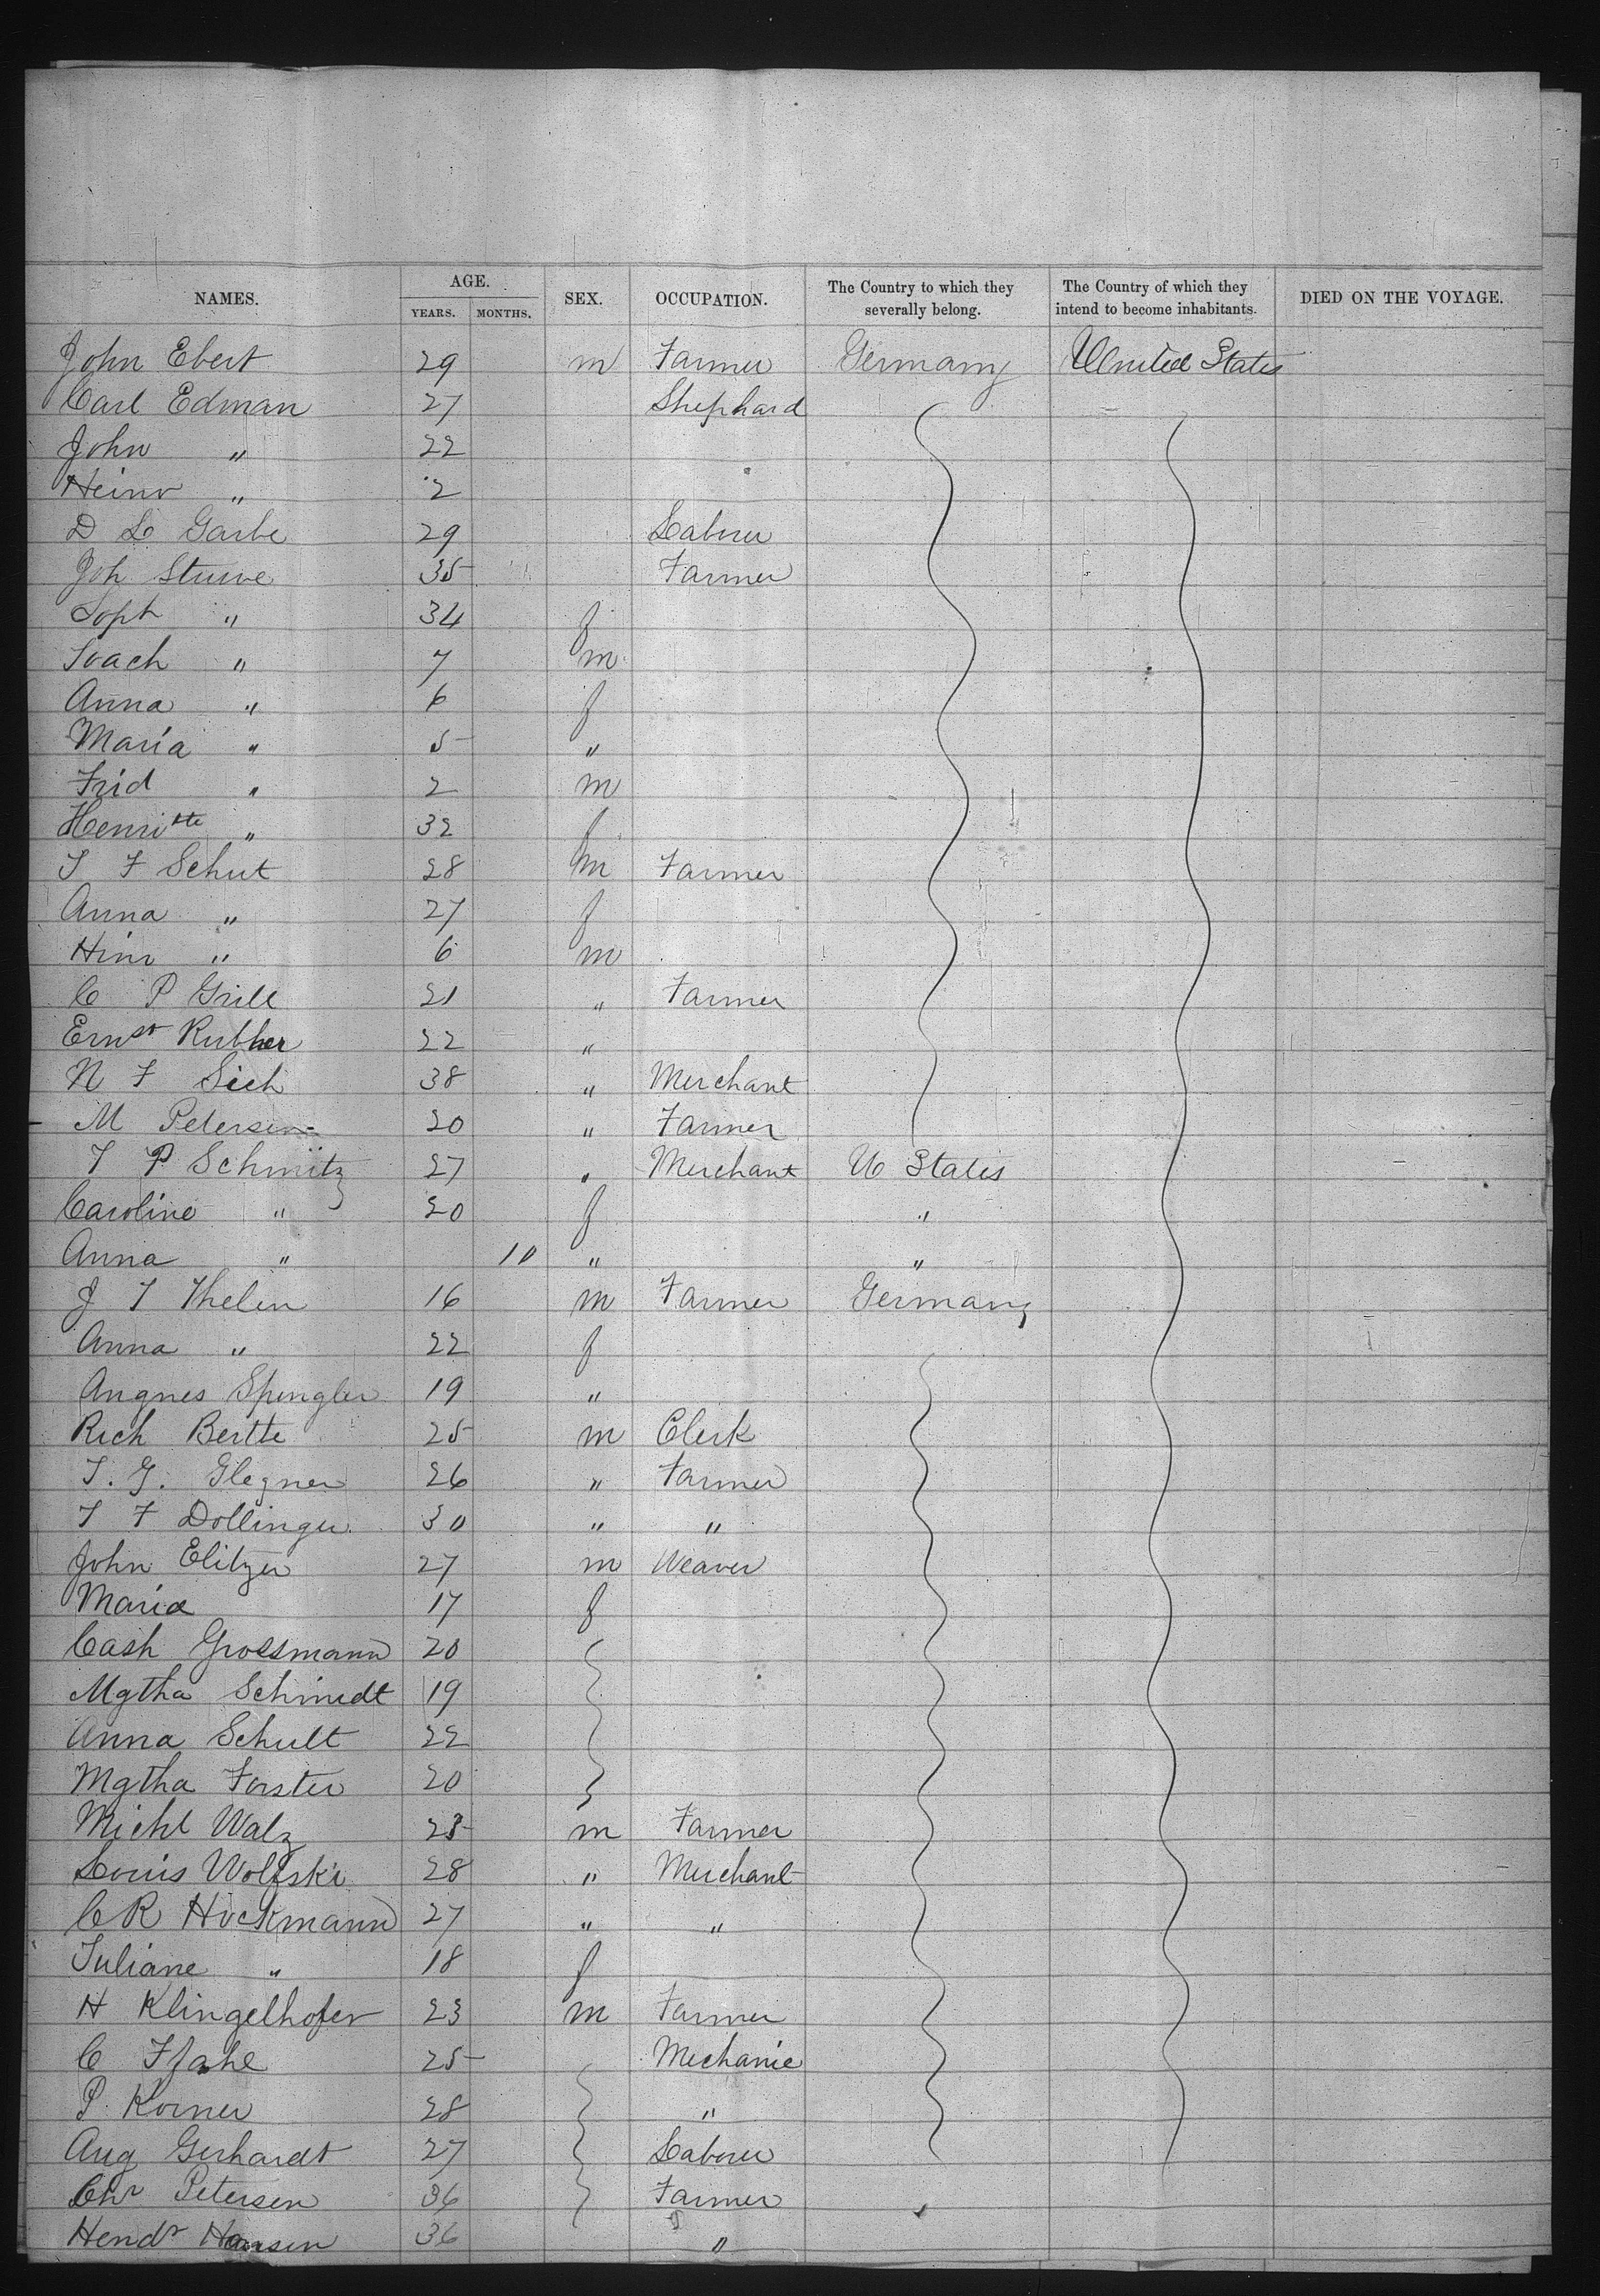 NAMES. AGE. SEX. OCCUPATION. The Country to which they severally belong. The Country of which they intend to become inhabitants. DIED ON THE VOYAGE.
YEARS. MONTHS.
John Ebert 29 m Farmer Germany United States
Carl Edman 27 Shephard
John " 22
Heinr " 2
D L Garbe 29 Laborer
Joh Stuwe 35 Farmer
Soph " 34 f
Joach " 7 m
Anna " 6 f
Maria " 5 "
Frid " 2 m
Henritte " 32 f
J F Schut 28 m Farmer
Anna " 27 f
Hinr " 6 m
C P Grill 21 " Farmer
Ernst Rubher 22 "
N F Sich 38 " Merchant
M Petersen 20 " Farmer
J P Schmitz 27 " Merchant U States
Caroline " 20 f "
Anna " 10 " "
J J Thelen 16 m Farmer Germany
Anna " 22 f
Angnes Spengler 19 "
Rich Bertte 25 m Clerk
J. G. Glegner 26 " Farmer
J F Dollinger 30 " "
John Elitzer 27 m Weaver
Maria 17 f
Cash Grossmann 20
Mgtha Schmidt 19
Anna Schult 22
Mgtha Forster 20
Michl Walz 25 m Farmer
Louis Wolfski 28 " Merchant
C R Hockmann 27 " "
Juliane " 18 f
H Klingelhofer 23 m Farmer
C 25 Mechanic
P. Korner 28 "
Aug Gerhardt 27 Laborer
Chr Petersen 36 Farmer
Hendr Hansen 36 "